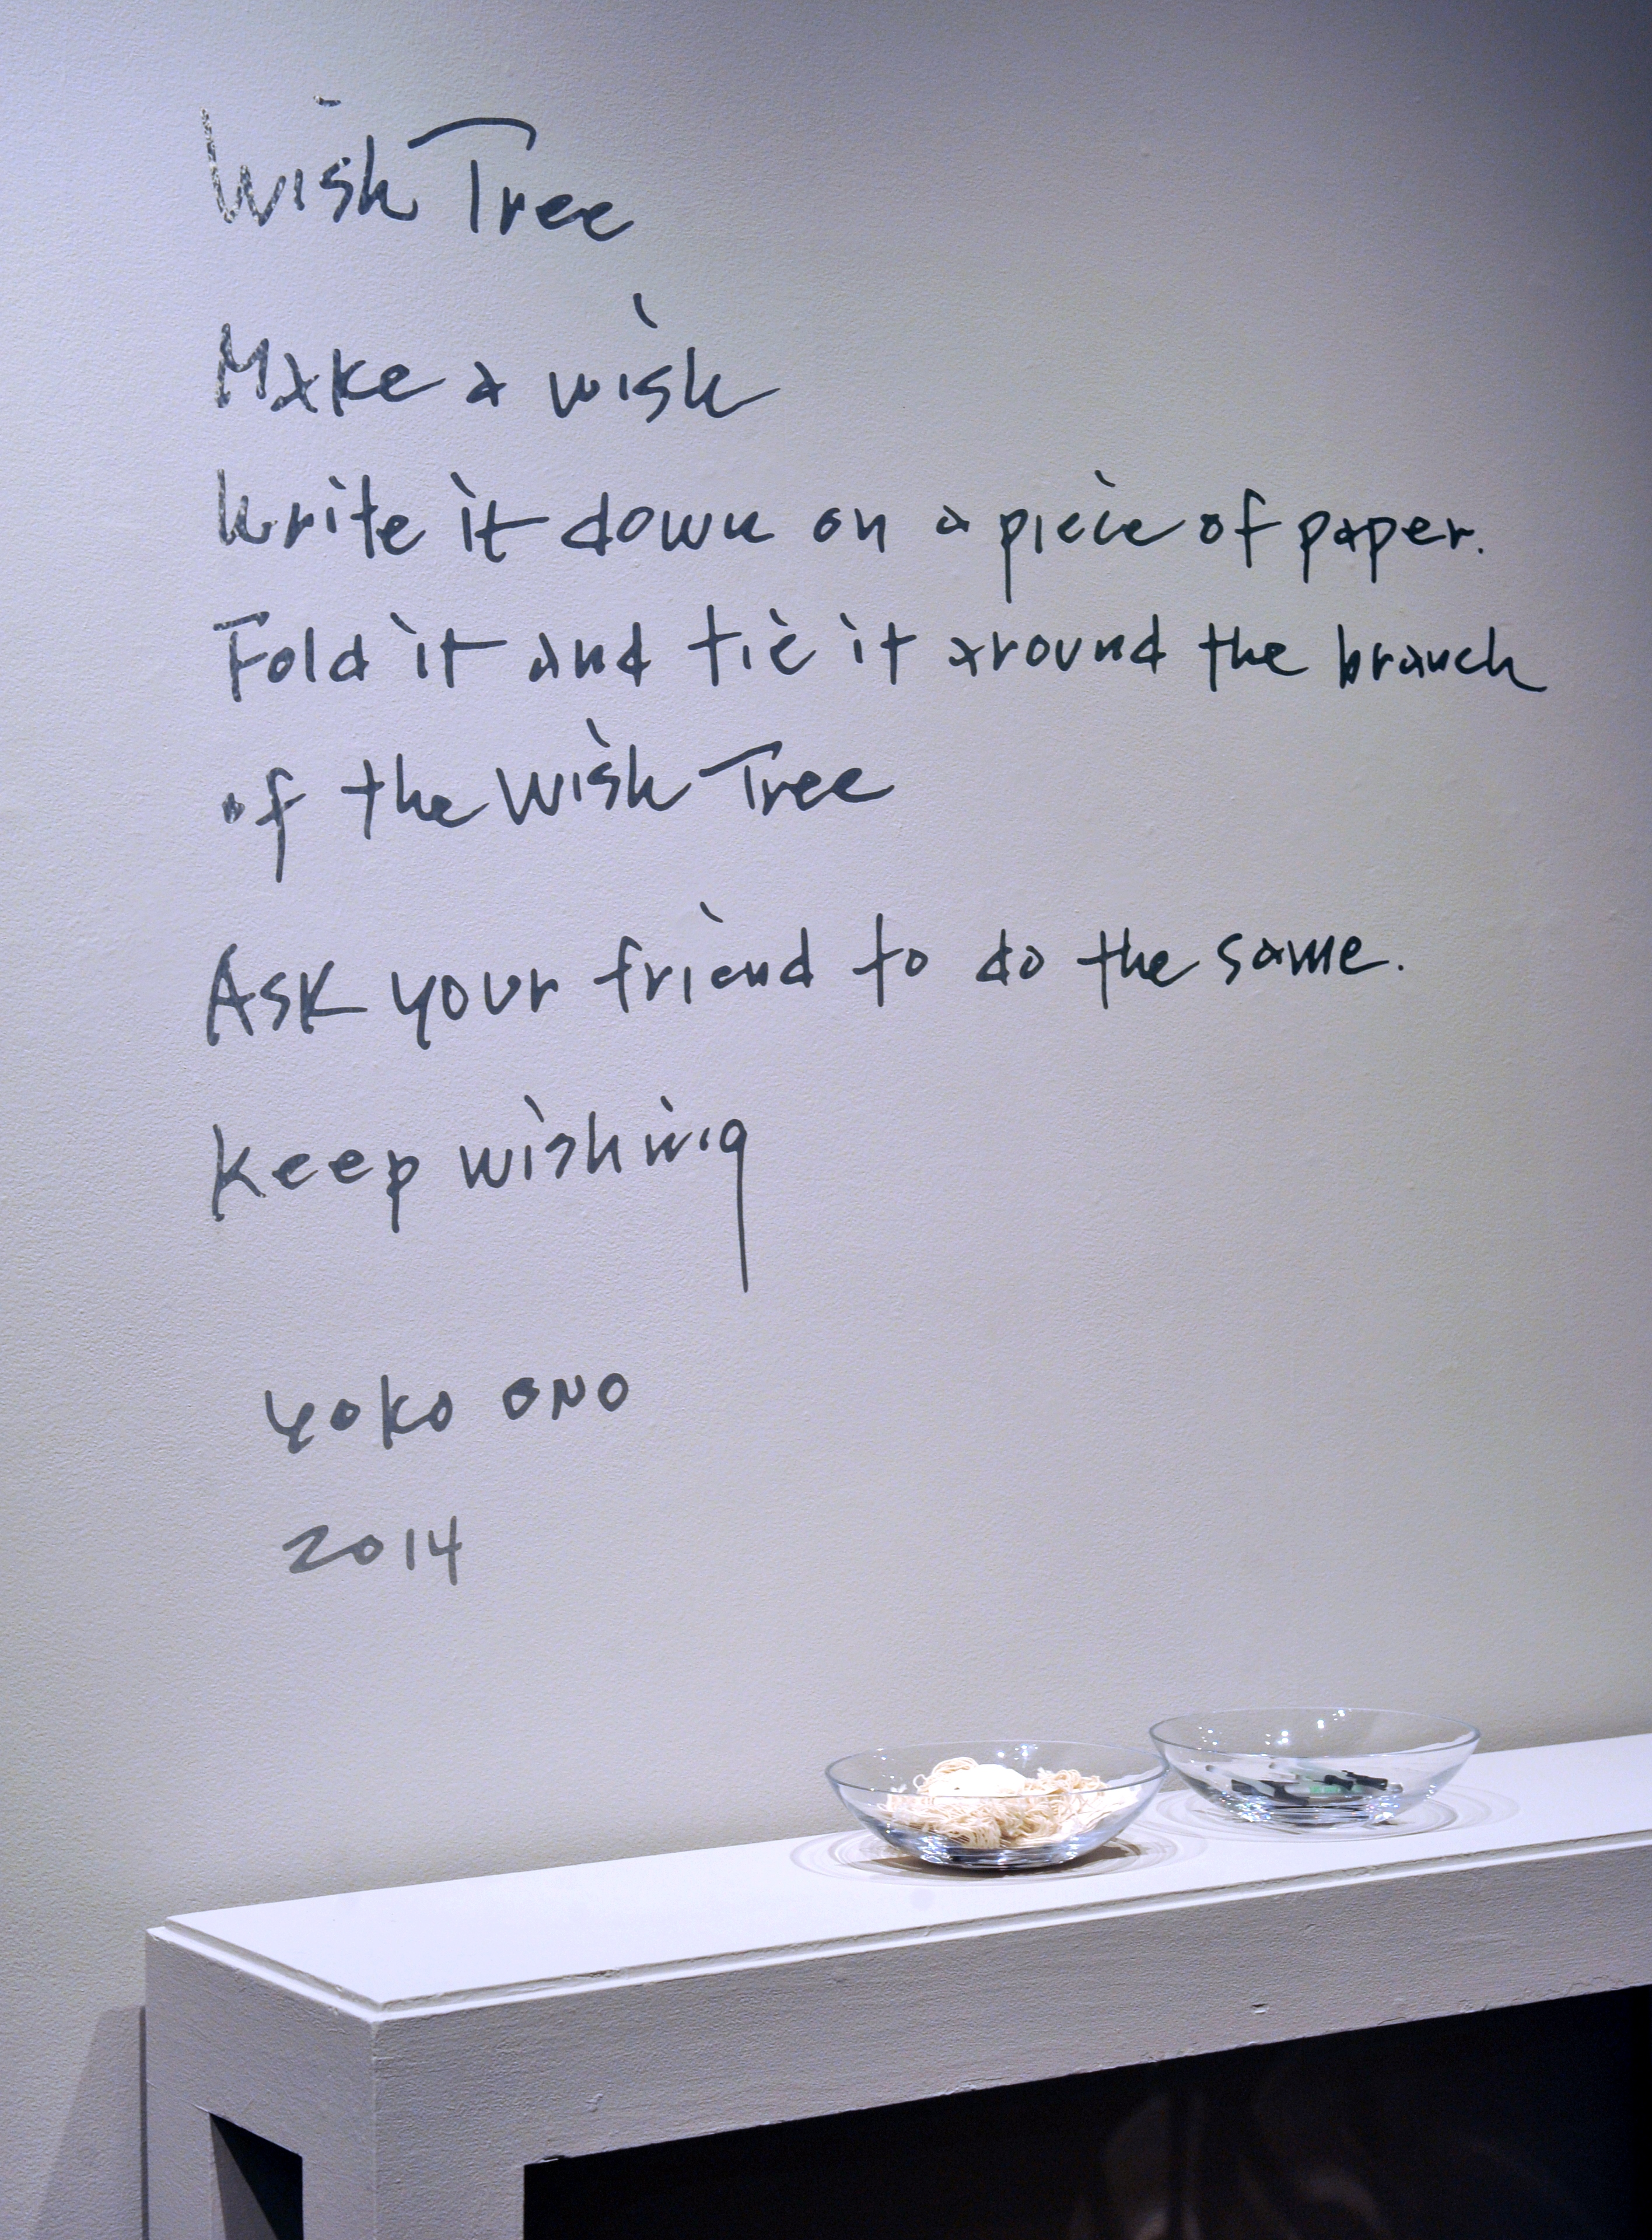 Wish Tree
Make a wish
Write it down on a piece of paper.
Fold it and tie it around the branch
of the Wish Tree
Ask your friend to do the same.
Keep wishing
yoko ono
2014